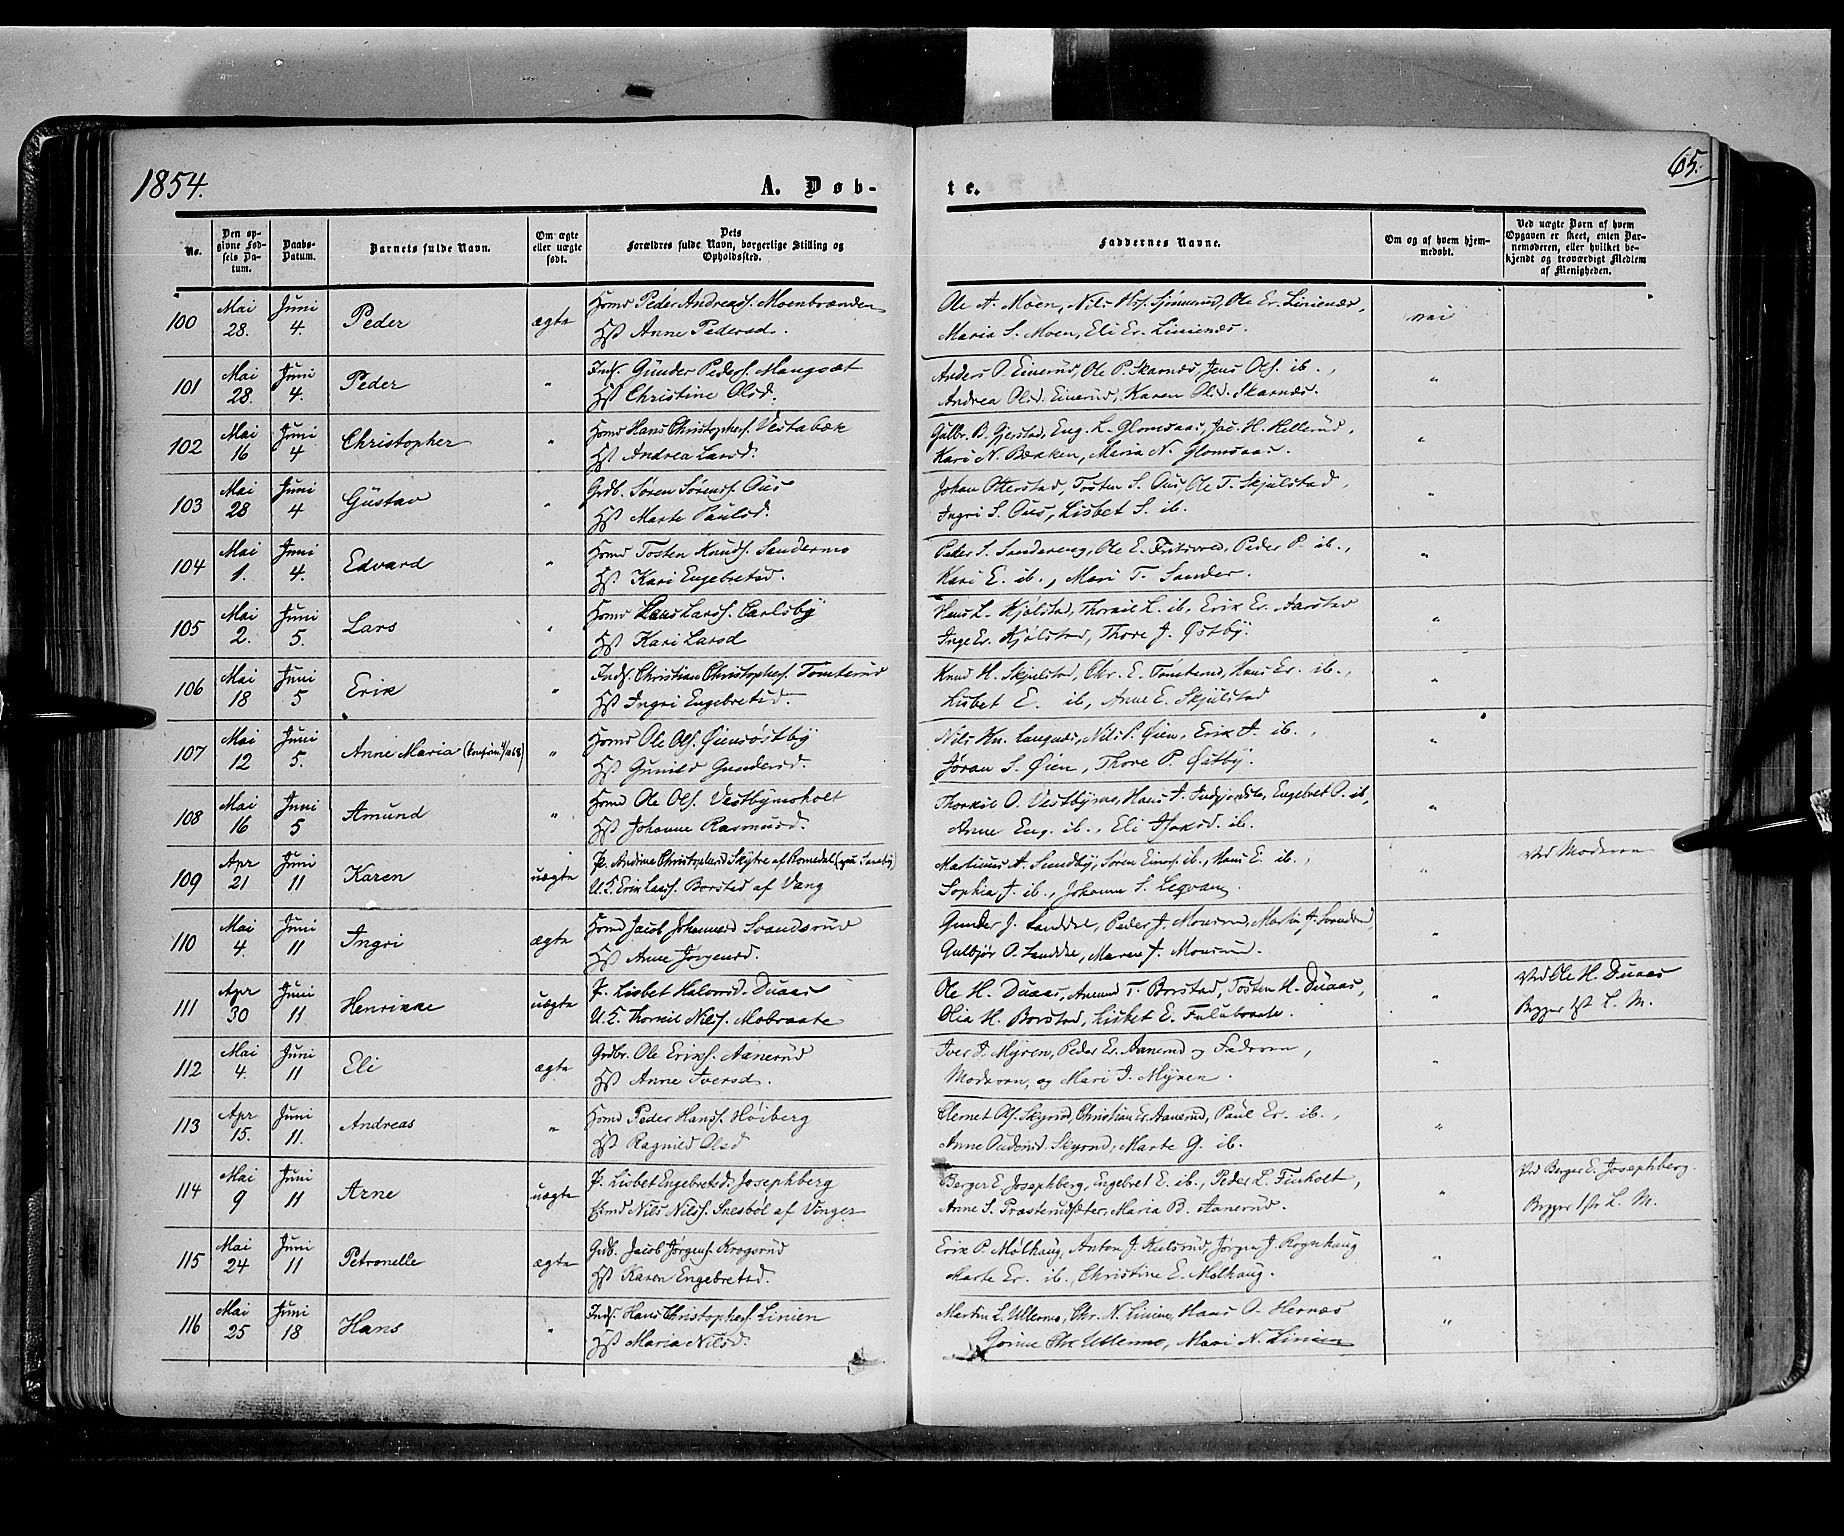 1854.
A. Døb-
te.
65.
No.
Den op-
givne Fød-
sels Da-
tum.
Daabs-
Datum.
Barnets fulde Navn.
Om ægte
eller uægte
født.
Dets
Forældres fulde Navn, borgerlige Stilling og
Opholdssted.
Faddernes Navne.
Om og af hvem hjem-
medøbt.
Ved uægte Børn af hvem
Opgaven er skeet, enten Bar-
nemoderen, eller hvilket be-
kjendt og troværdigt Medlem
af Menigheden.
100 Mai 28. Juni 4. Peder ægte Hmd Peder Andreass. Moenbrænden
Hst Anne Pedersd.
Ole A. Moen, Nils Ole Er. Linienæs,
Maria S. Moen, Eli Er. Linienæs.
nei
101 Mai 28. Juni 4. Peder " Inds. Gunder Peders. Mangsæt
Hst Christine Olsd.
Anders O. Einerud, Ole P. Skarnæs, Jens Ols. ib.,
Andrea Olsd. Einerud, Karen Ol.d. Skarnæs.
"
102 Mai 16 Juni 4 Christopher " Hmd Hans Christophers. Vestabæk
Hst Andrea Larsd.
Gulbr. B. Gjerstad, Eng. L. Glomsaas, Jac. H. Hellerud,
Kari N. Bækken, Maria N. Glomsaas.
"
103 Mai 28 Juni 4 Gustav " Grdb. Søren Sørens. Ous
Hst Marte Paulsd.
Johan Otterstad, Tosten S. Ous, Ole T. Skjulstad,
Ingri S. Ous, Lisbet S. ib.
"
104 Mai 1. Juni 4. Edvard " Hmd Tosten Knuds. Sandermo
Hst Kari Engebretsd.
Peder S. Sandereng, Ole E. Peder P. ib.,
Kari E. ib., Mari T. Sander.
"
105 Mai 2. Juni 5. Lars " Hmd Hans Larss. Carlsby
Hst Kari Larsd
Hans L. Kjølstad, Thorkil L. ib, Erik Er. Aarstad
Inge Er. Kjølstad, Thore J. Østby.
"
106 Mai 18 Juni 5 Erik " Inds. Christian Christophers. Tomterud
Hst Ingri Engebretsd.
Knud H. Skjulstad, Chr. E. Tomterud, Hans Er. ib.,
Lisbet E. ib, Anne E. Skjulstad
"
107 Mai 12 Juni 5. Anne Maria " Hmd Ole Ols. Øiensøstby
Hst Gunild Gundersd.
Nils Kn. Langnæs, Nils P. Øien, Erik A. ib.,
Jøran S. Øien, Thore P. Østby.
"
108 Mai 16 Juni 5 Amund " Hmd Ole Ols. Vestbymoholt
Hst Johanne Rasmusd.
Thorkil O. Vestbymo, Hans A. Engebret O. ib,
Anne Eng. ib., Eli ib.
"
109 Apr 21 Juni 11 Karen uægte P. Andrine Christophersd Skytre af Romedal
U.K. Erik Larss. Borstad af Vang
Martinus A. Sundby, Søren Einers. ib., Hans E. ib.,
Sophia J. ib., Johanne S. Legvang.
"
Ved Moderen
110 Mai 4. Juni 11 Ingri ægte Hmd Jacob Johannesd Svandsrud
Hst Anne Jørgensd.
Gunder J. Peder J. Monsrud, Martin J.
Gulbjør O. Maren J. Monsrud.
"
111 Apr 30 Juni 11. Henrikke uægte P. Lisbet Halvorsd. Duaas
U.K. Thorkil Nilss. Mobraate
Ole H. Duaas, Amund T. Borstad, Tosten H. Duaas,
Olia H. Borstad, Lisbet E. Fulubraate.
"
Ved Ole H. Duaas
Begges 1st L. M.
112 Mai 4. Juni 11 Eli ægte Grdbr. Ole Eriks. Aanerud
Hst Anne Iversd.
Iver J. Myren, Peder Er. Aanerud og Faderen,
Moderen, og Mari I. Myren.
"
113 Apr 15. Juni 11. Andreas " Hmd Peder Hanss. Høiberg
Hst Ragnild Olsd
Clemet Ols. Skyrud, Christian Er. Aanerud, Paul Er. ib.,
Anne Skyrud, Marte G. ib.
"
114 Mai 9 Juni 11 Arne uægte P. Lisbet Engebretsd. Josephberg
Nils Nilss. Snesbøl af Vinger
Berger E. Josephberg, Engebret E. ib., Peder L. Finholt,
Anne S. Præsterudsæter, Maria B. Aanerud.
"
Ved Berger E. Josephberg.
Begges 1ste L. M.
115 Mai 24 Juni 11 Petronelle ægte Grdb. Jacob Jørgens. Krogsrud
Hst Karen Engebretsd.
Erik P. Mølhaug, Anton J. Kulsrud, Jørgen J. Rognhaug
Marte Er. ib., Christine E. Mølhaug.
"
116 Mai 25 Juni 18 Hans " Inds. Hans Christophers. Linien
Hst Maria Nilsd.
Martin L. Ullerno, Chr. N. Linien, Hans O. Hernæs
Gorine Chr. Ullerno, Mari N. Linien
"